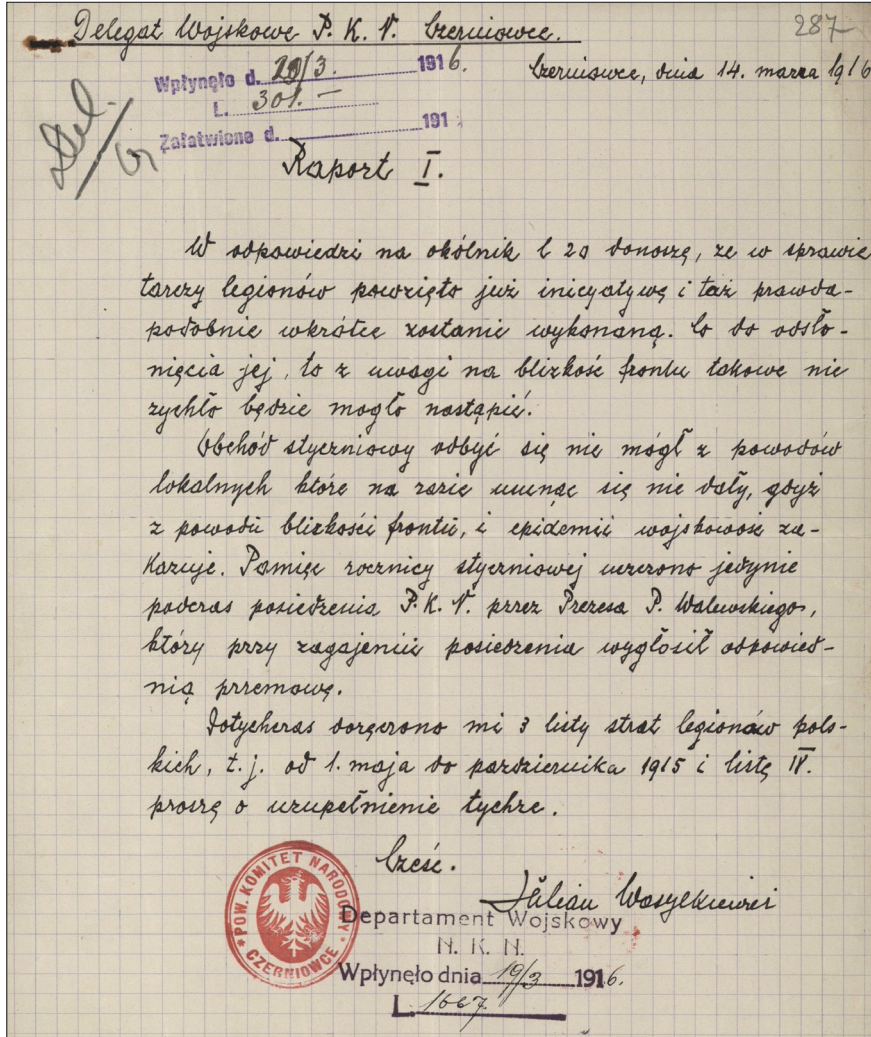 Delegat Wojskowy P. K. N. Czerniowce.
287
Wpłynęło d. 29/3. 1916.
L. 301. —
Załatwiono d. 191
Czerniowce, dnia 14. marca 1916
Raport I.
W odpowiedzi na okólnik l 20 donoszę, że w sprawie
tarczy legionów powzięto już inicyatywę i taż prawdo-
podobnie wkrótce zostanie wykonaną. Co do odsło-
nięcia jej, to z uwagi na blizkość frontu takowe nie
rychło będzie mogło nastąpić.
Obchód styczniowy odbyć się nie mógł z powodów
lokalnych które na razie usunąć się nie dały, gdyż
z powodu blizkości frontu, i epidemii wojskowość za-
kazuje. Pamięć rocznicy styczniowej uczczono jedynie
podczas posiedzenia P. K. N. przez Prezesa P. Walewskiego,
który przy zagajeniu posiedzenia wygłosił odpowied-
nią przemowę.
Dotychczas doręczono mi 3 listy strat legionów pols-
kich, t. j. od 1. maja do października 1915 i listę IV.
proszę o uzupełnienie tychże.
Cześć.
Julian Wasylkiewicz
POW. KOMITET NARODOWY
CZERNIOWCE
Departament Wojskowy
N. K. N.
Wpłynęło dnia 19/3 1916.
L. 1667